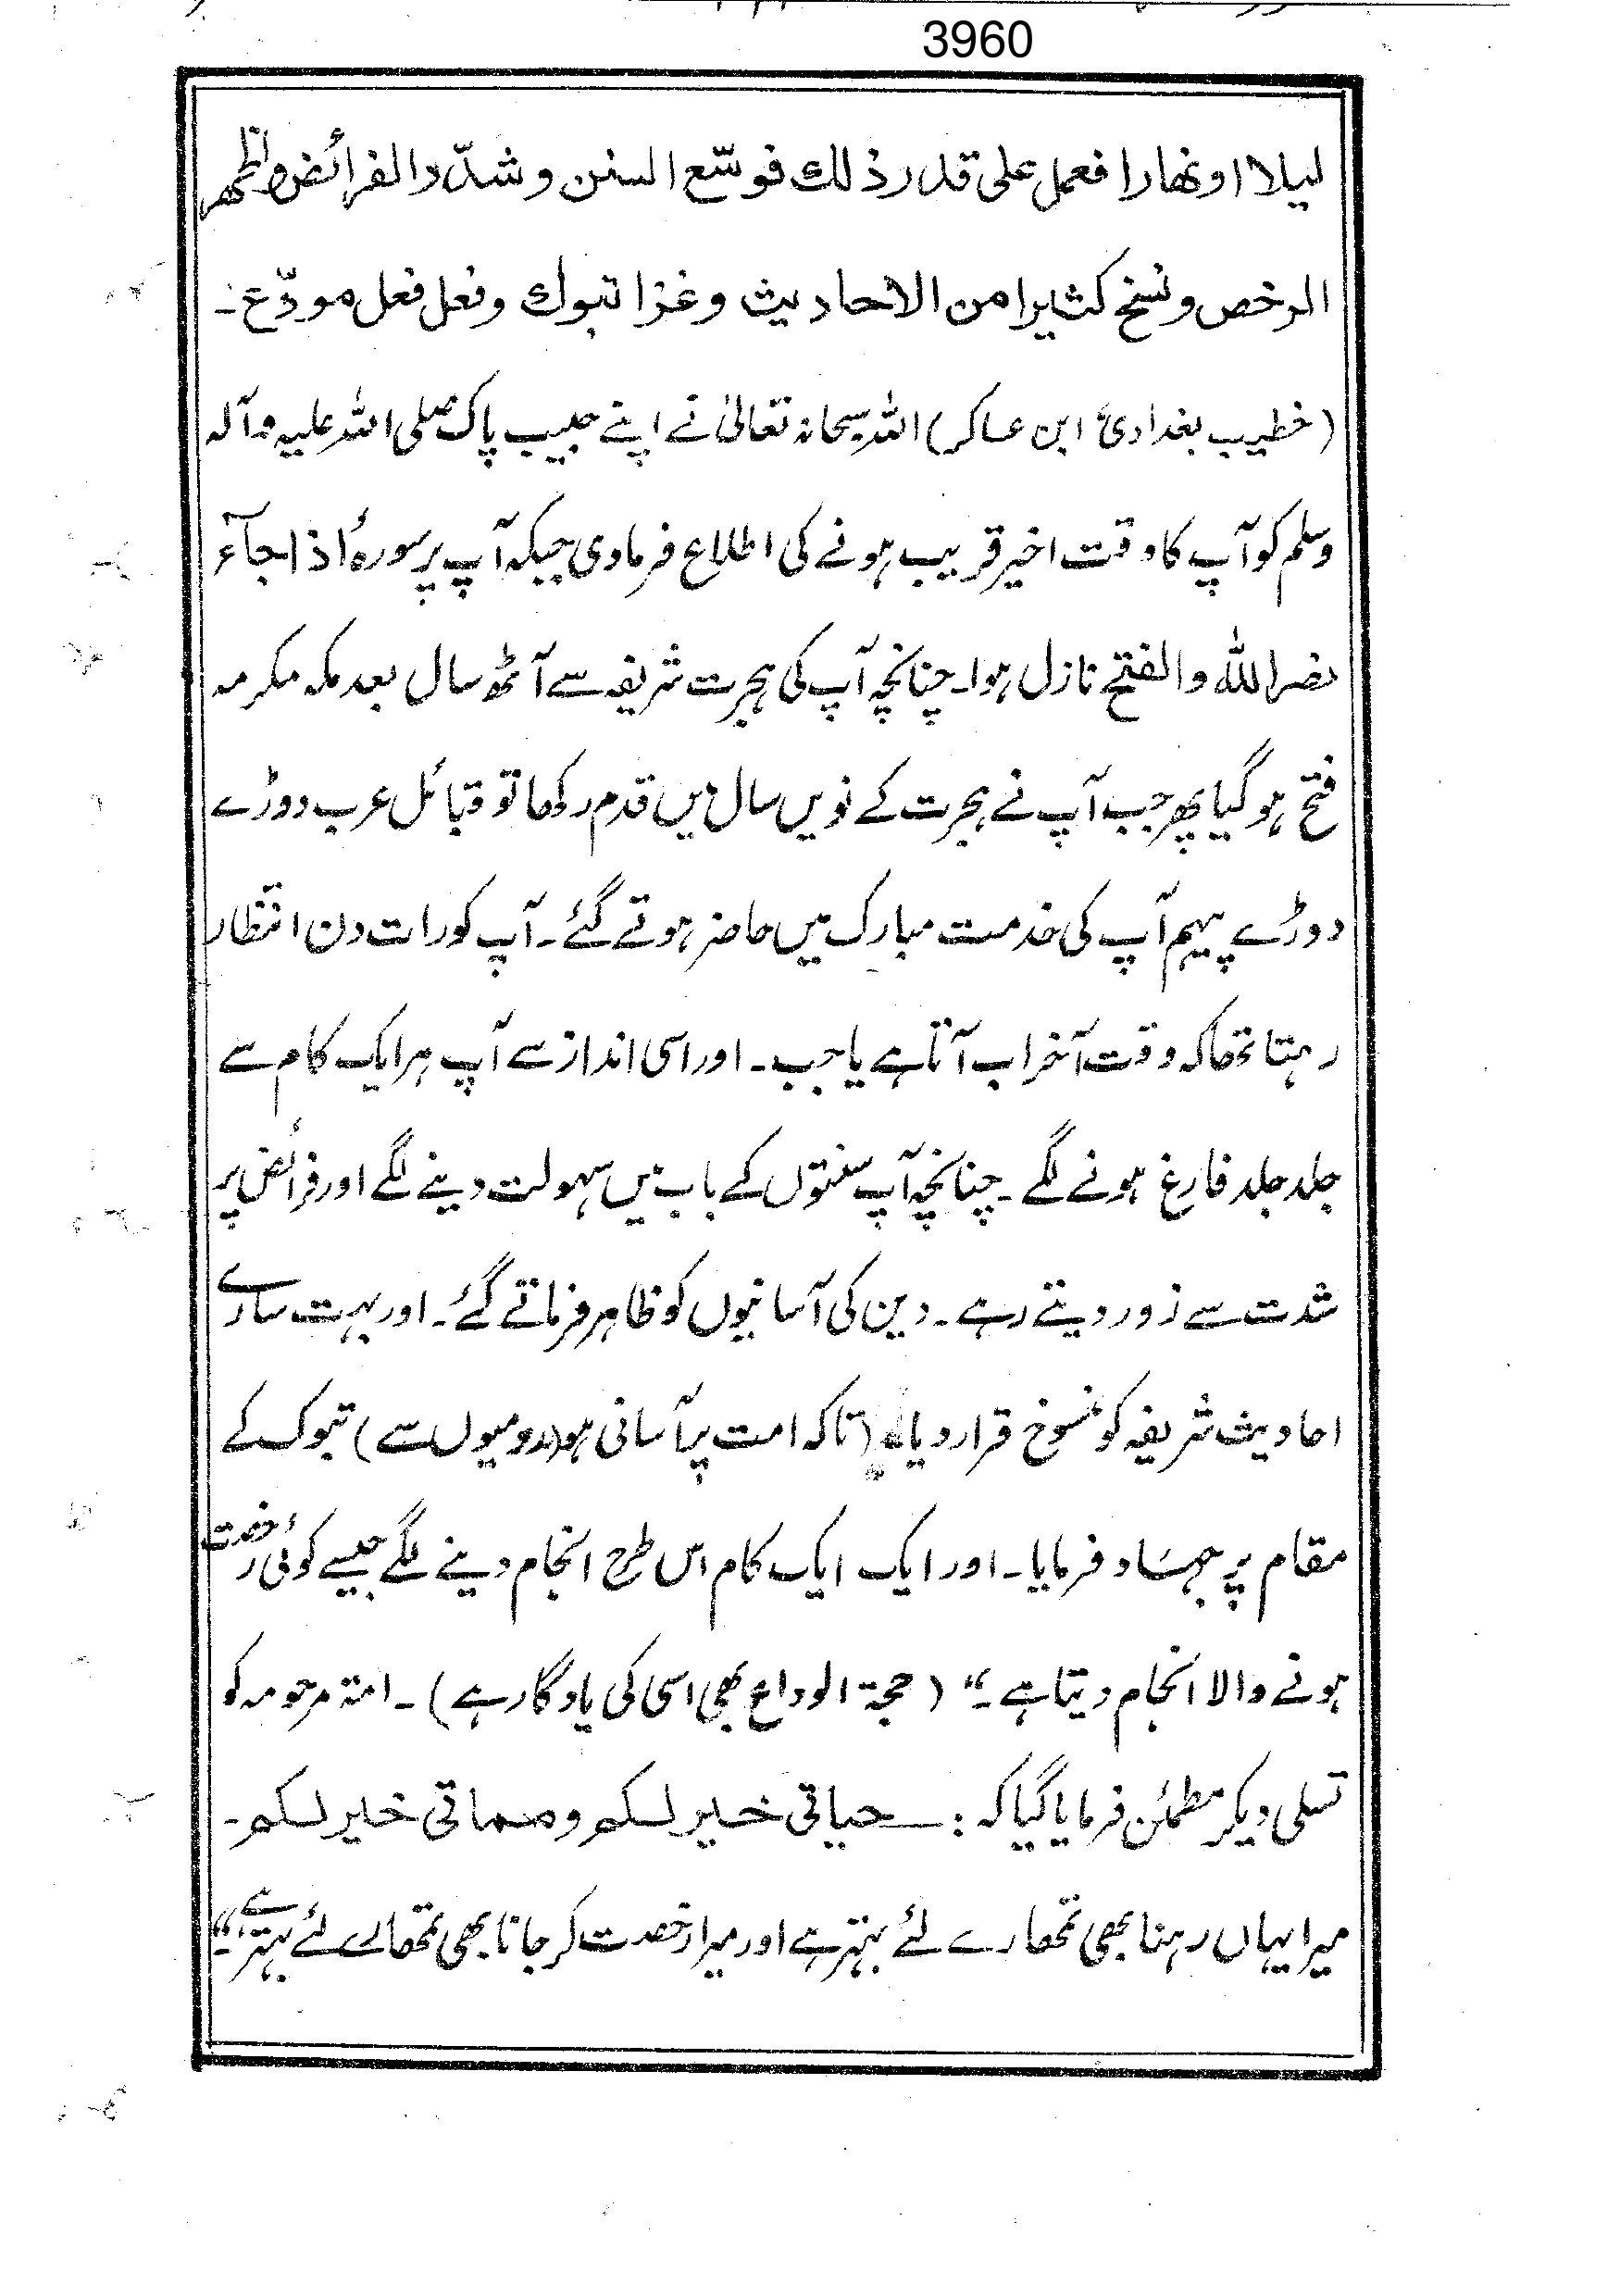 3960
ليلا او نهارا فعمل على قدر ذلك فوسّع السنن وشدّد الفرائض واظهر
الرخص ونسخ كثيرا من الاحاديث وغزا تبوك وفعل فعل مودّع ۔
(خطیب بغدادیؒ ابن عساکر) اللہ سبحانہ تعالیٰ نے اپنے حبیب پاک صلی اللہ علیہ وآلہ
وسلم کو آپ کا وقت اخیر قریب ہونے کی اطلاع فرمادی جبکہ آپ پر سورۂ اذا جآء
نصر اللہ والفتح نازل ہوا۔ چنانچہ آپ کی ہجرت شریفہ سے آٹھ سال بعد مکہ مکرمہ
فتح ہو گیا پھر جب آپ نے ہجرت کے نویں سال میں قدم رکھا تو قبائل عرب دوڑے
دوڑے پیہم آپ کی خدمت مبارک میں حاضر ہوتے گئے۔ آپ کو رات دن انتظار
رہتا تھا کہ وقت آخر اب آتا ہے یا جب۔ اور اسی انداز سے آپ ہر ایک کام سے
جلد جلد فارغ ہونے لگے۔ چنانچہ آپ سنتوں کے باب میں سہولت دینے لگے اور فرائض پر
شدت سے زور دیتے رہے۔ دین کی آسانیوں کو ظاہر فرماتے گئے۔ اور بہت سارے
احادیث شریفہ کو منسوخ قرار دیا (تاکہ امت پر آسانی ہو) (رومیوں سے) تبوک کے
مقام پر جہاد فرمایا۔ اور ایک ایک کام اس طرح انجام دینے لگے جیسے کوئی رخصت
ہونے والا انجام دیتا ہے۔“ (حجۃ الوداع بھی اسی کی یادگار ہے)۔ امۃ مرحومہ کو
تسلی دیکر مطمئن فرمایا گیا کہ :ــ حیاتی خیر لکم ومماتی خیر لکم۔
میرا یہاں رہنا بھی تمھارے لئے بہتر ہے اور میرا رخصت کر جانا بھی تمھارے لئے بہتر ہے۔“